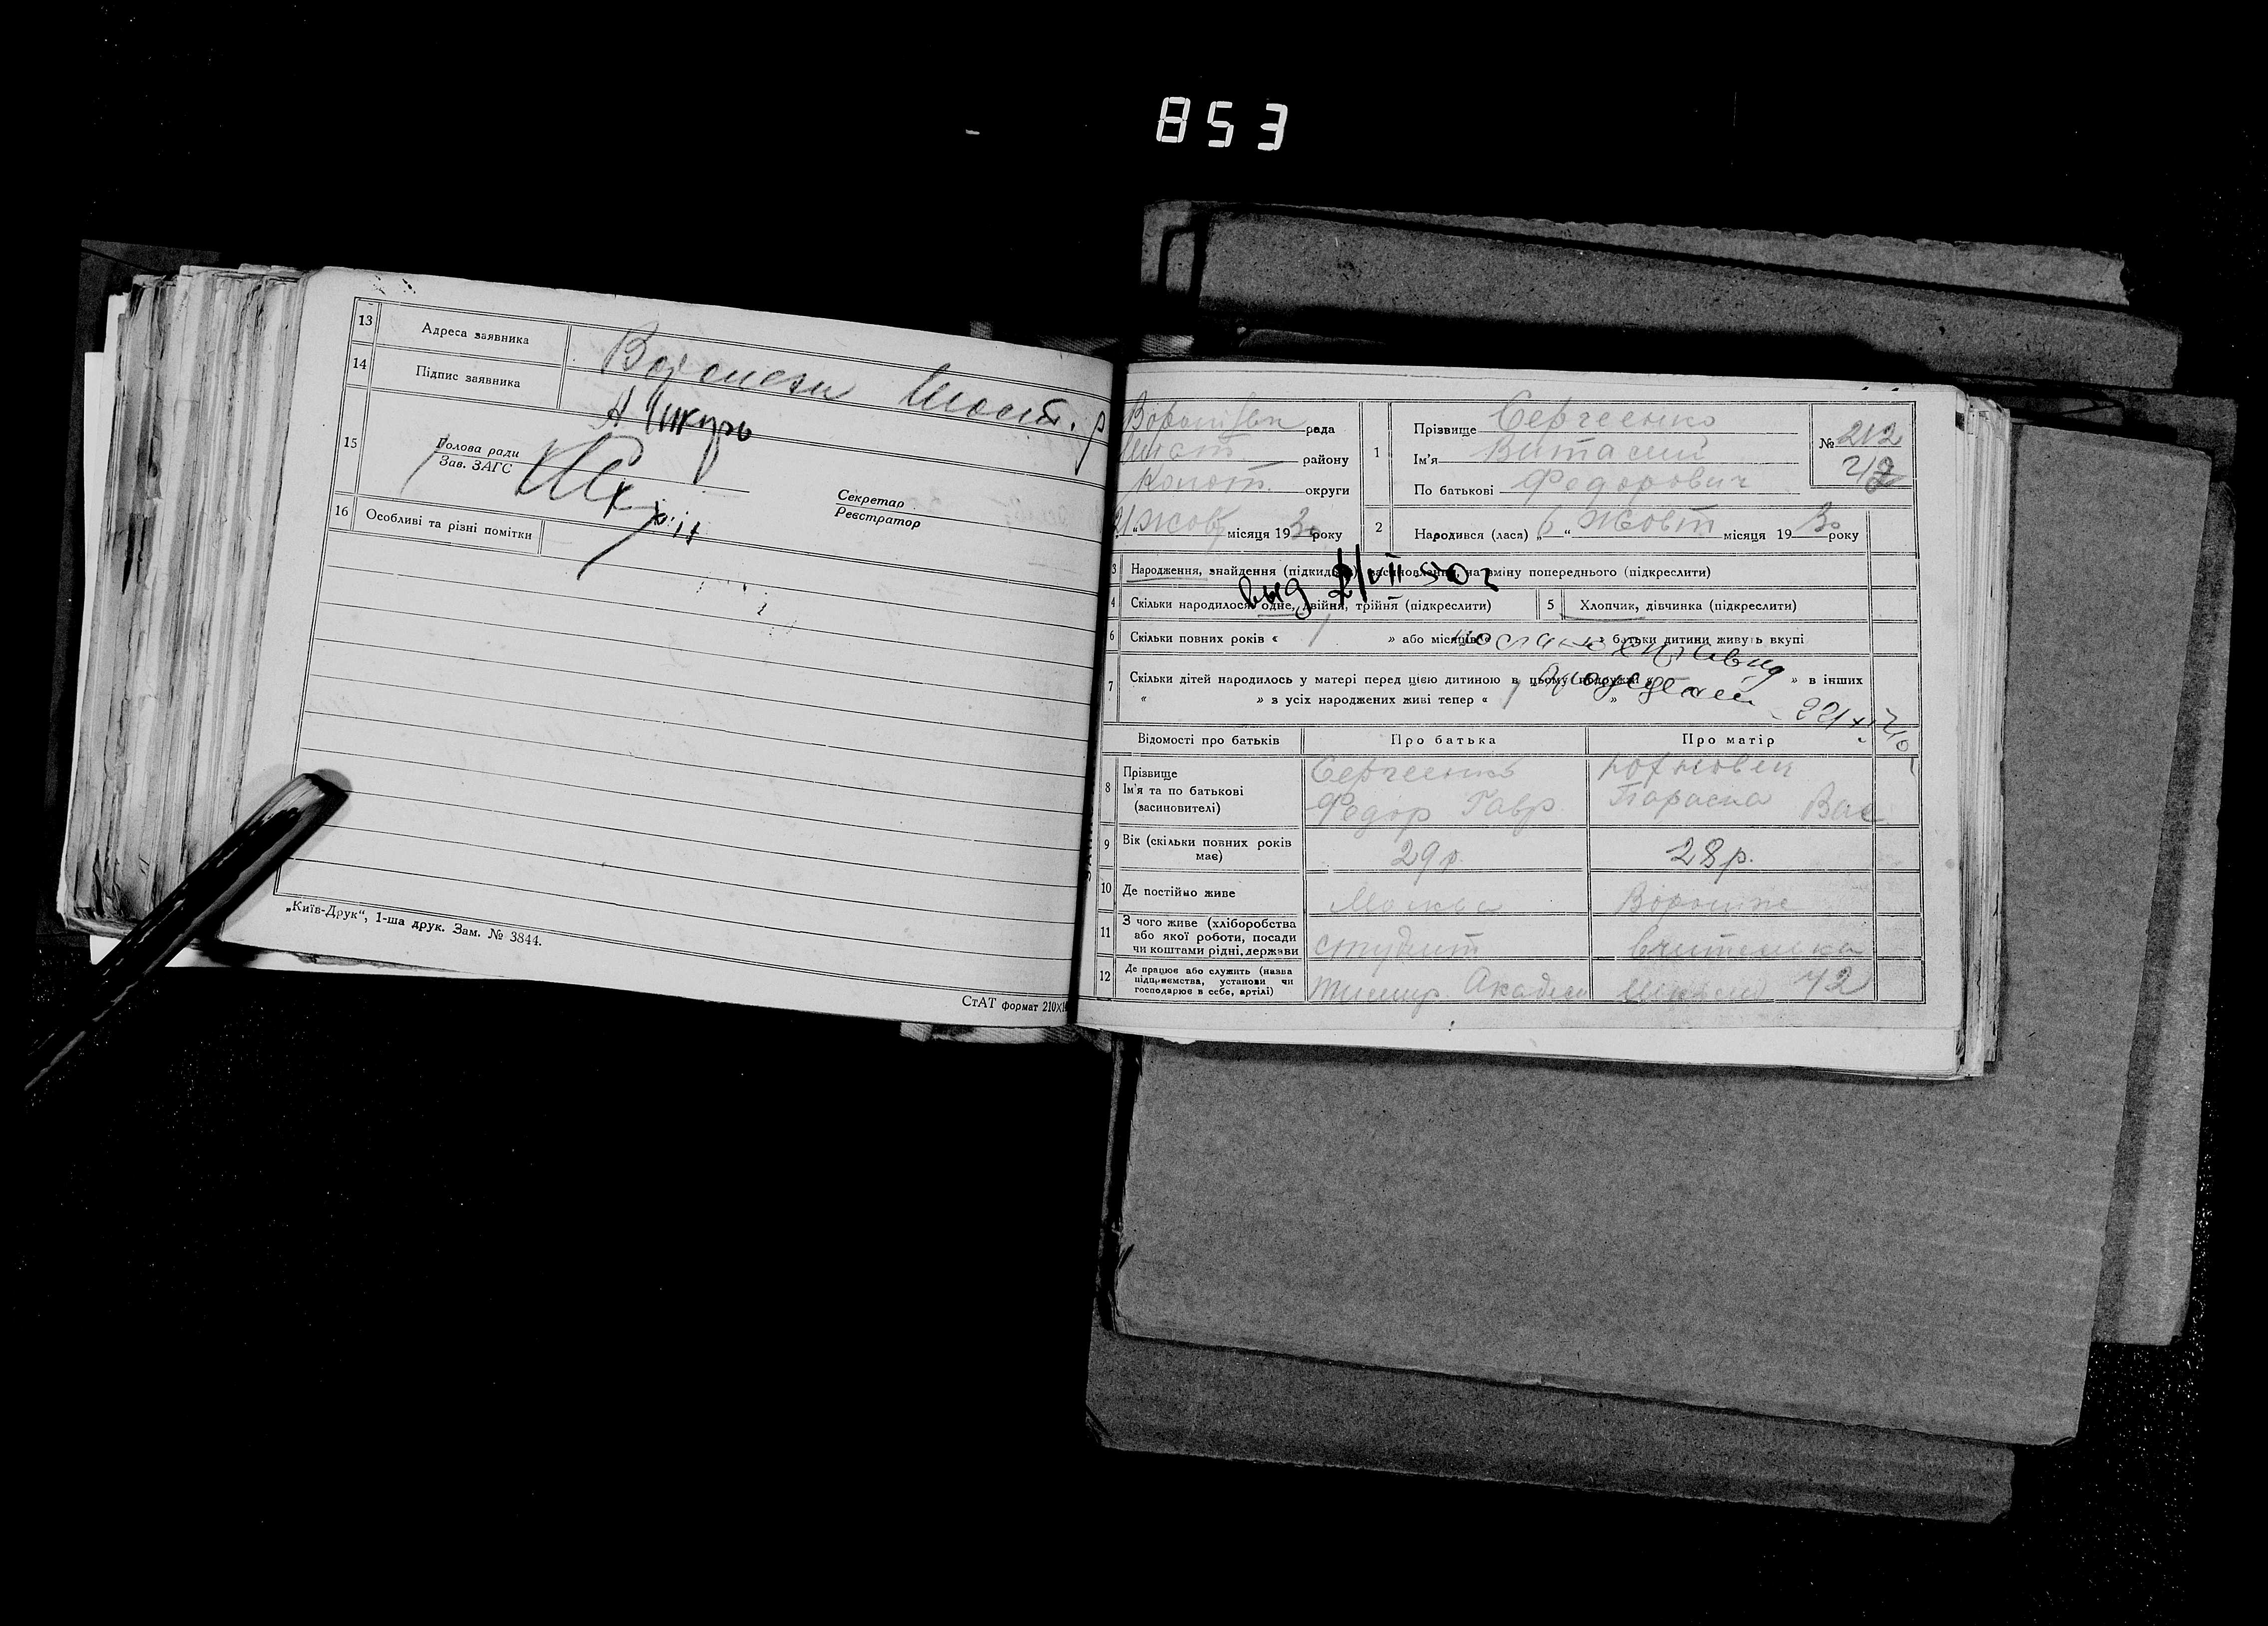 853
13 Адреса заявника Шост. р
14 Підпис заявника А Шкурь
15 Голова ради
Зав. ЗАГС
Секретар
Реєстратор
16 Особливі та різні помітки
„Київ-Друк“, 1-ша друк. Зам. № 3844.
СтАТ формат 210Х
рада
Шост району
Конот. округи
21 „Жовт місяця 1930 року
1 Прізвище Сергеенко
Ім'я Виталий
По батькові Федорович
№ 212
2 Народився (лася) „6“ Жовт місяця 1930 року
3 Народження, знайдення (підкидьок) засиновлення, на зміну попереднього (підкреслити)
выд 2/VII 50 г
4 Скільки народилося: одне, двійня, трійня (підкреслити)
5 Хлопчик, дівчинка (підкреслити)
6 Скільки повних років « » або місяців « » батьки дитини живуть вкупі
7 Скільки дітей народилось у матері перед цією дитиною в цьому подружжі « » в інших
« » з усіх народжених живі тепер « »
Відомості про батьків Про батька Про матір
8 Прізвище
Ім'я та по батькові
(засиновителі)
Сергеенко
Федор Гавр
Параска Вас
9 Вік (скільки повних років має) 29 р. 28 р.
10 Де постійно живе Москва Вороніж
11 З чого живе (хліборобства
або якої роботи, посади
чи коштами рідні, держави
студент Вчителька
12 Де працює або служить (назва
підприємства, установи чи
господарює в себе, артілі)
Академ 42